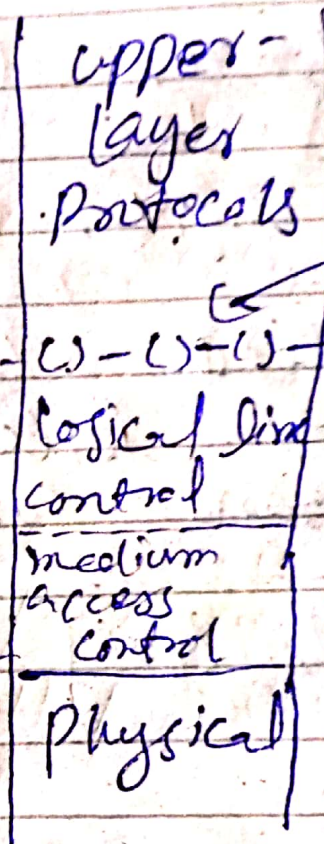 upper-
Layer
Protocols
Logical link
control
medium
access
control
Physical